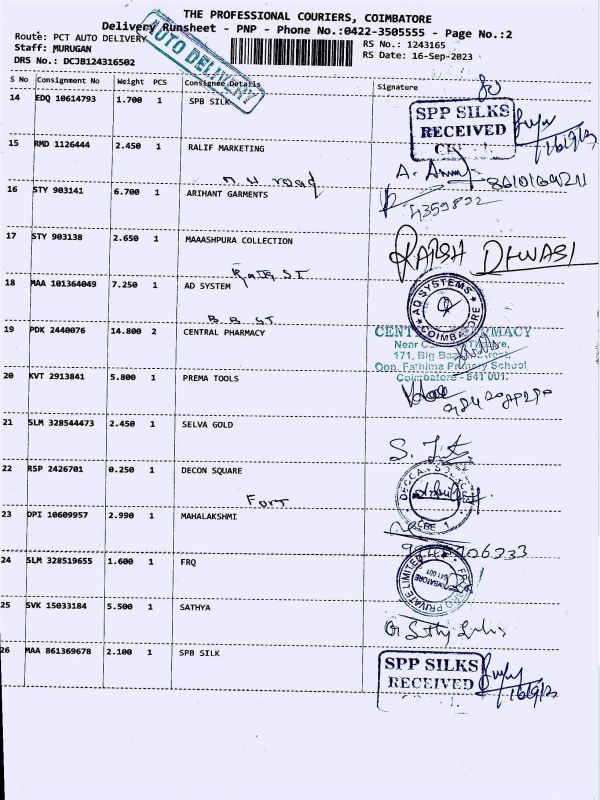 THE PROFESSIONAL COURIERS, COIMBATORE
Delivery Runsheet - PNP - Phone No.:0422-3505555 - Page No.:2
Route: PCT AUTO DELIVERY
RS No.: 1243165
Staff: MURUGAN
RS Date: 16-Sep-2023
DRS No.: DCJB124316502
AUTO DELIVERY
S No Consignment No Weight PCS Consignee Details Signature
14 EDQ 10614793 1.700 1 SPB SILK
SPP SILKS
RECEIVED
15 RMD 1126444 2.450 1 RALIF MARKETING
16 STY 903141 6.700 1 ARIHANT GARMENTS
17 STY 903138 2.650 1 MAAASHPURA COLLECTION
18 MAA 101364049 7.250 1 AD SYSTEM
AD SYSTEMS
COIMBATORE
19 PDK 2440076 14.800 2 CENTRAL PHARMACY
171, Big
Opp. Fathima Primary School
Coimbatore - 641 001.
20 KVT 2913841 5.800 1 PREMA TOOLS
21 SLM 328544473 2.450 1 SELVA GOLD
22 RSP 2426701 0.250 1 DECON SQUARE
Fort
CBE 1
23 DPI 10609957 2.990 1 MAHALAKSHMI
24 SLM 328519655 1.600 1 FRQ
PRIVATE LIMITED
641 001
25 SVK 15033184 5.500 1 SATHYA
26 MAA 861369678 2.100 1 SPB SILK
SPP SILKS
RECEIVED